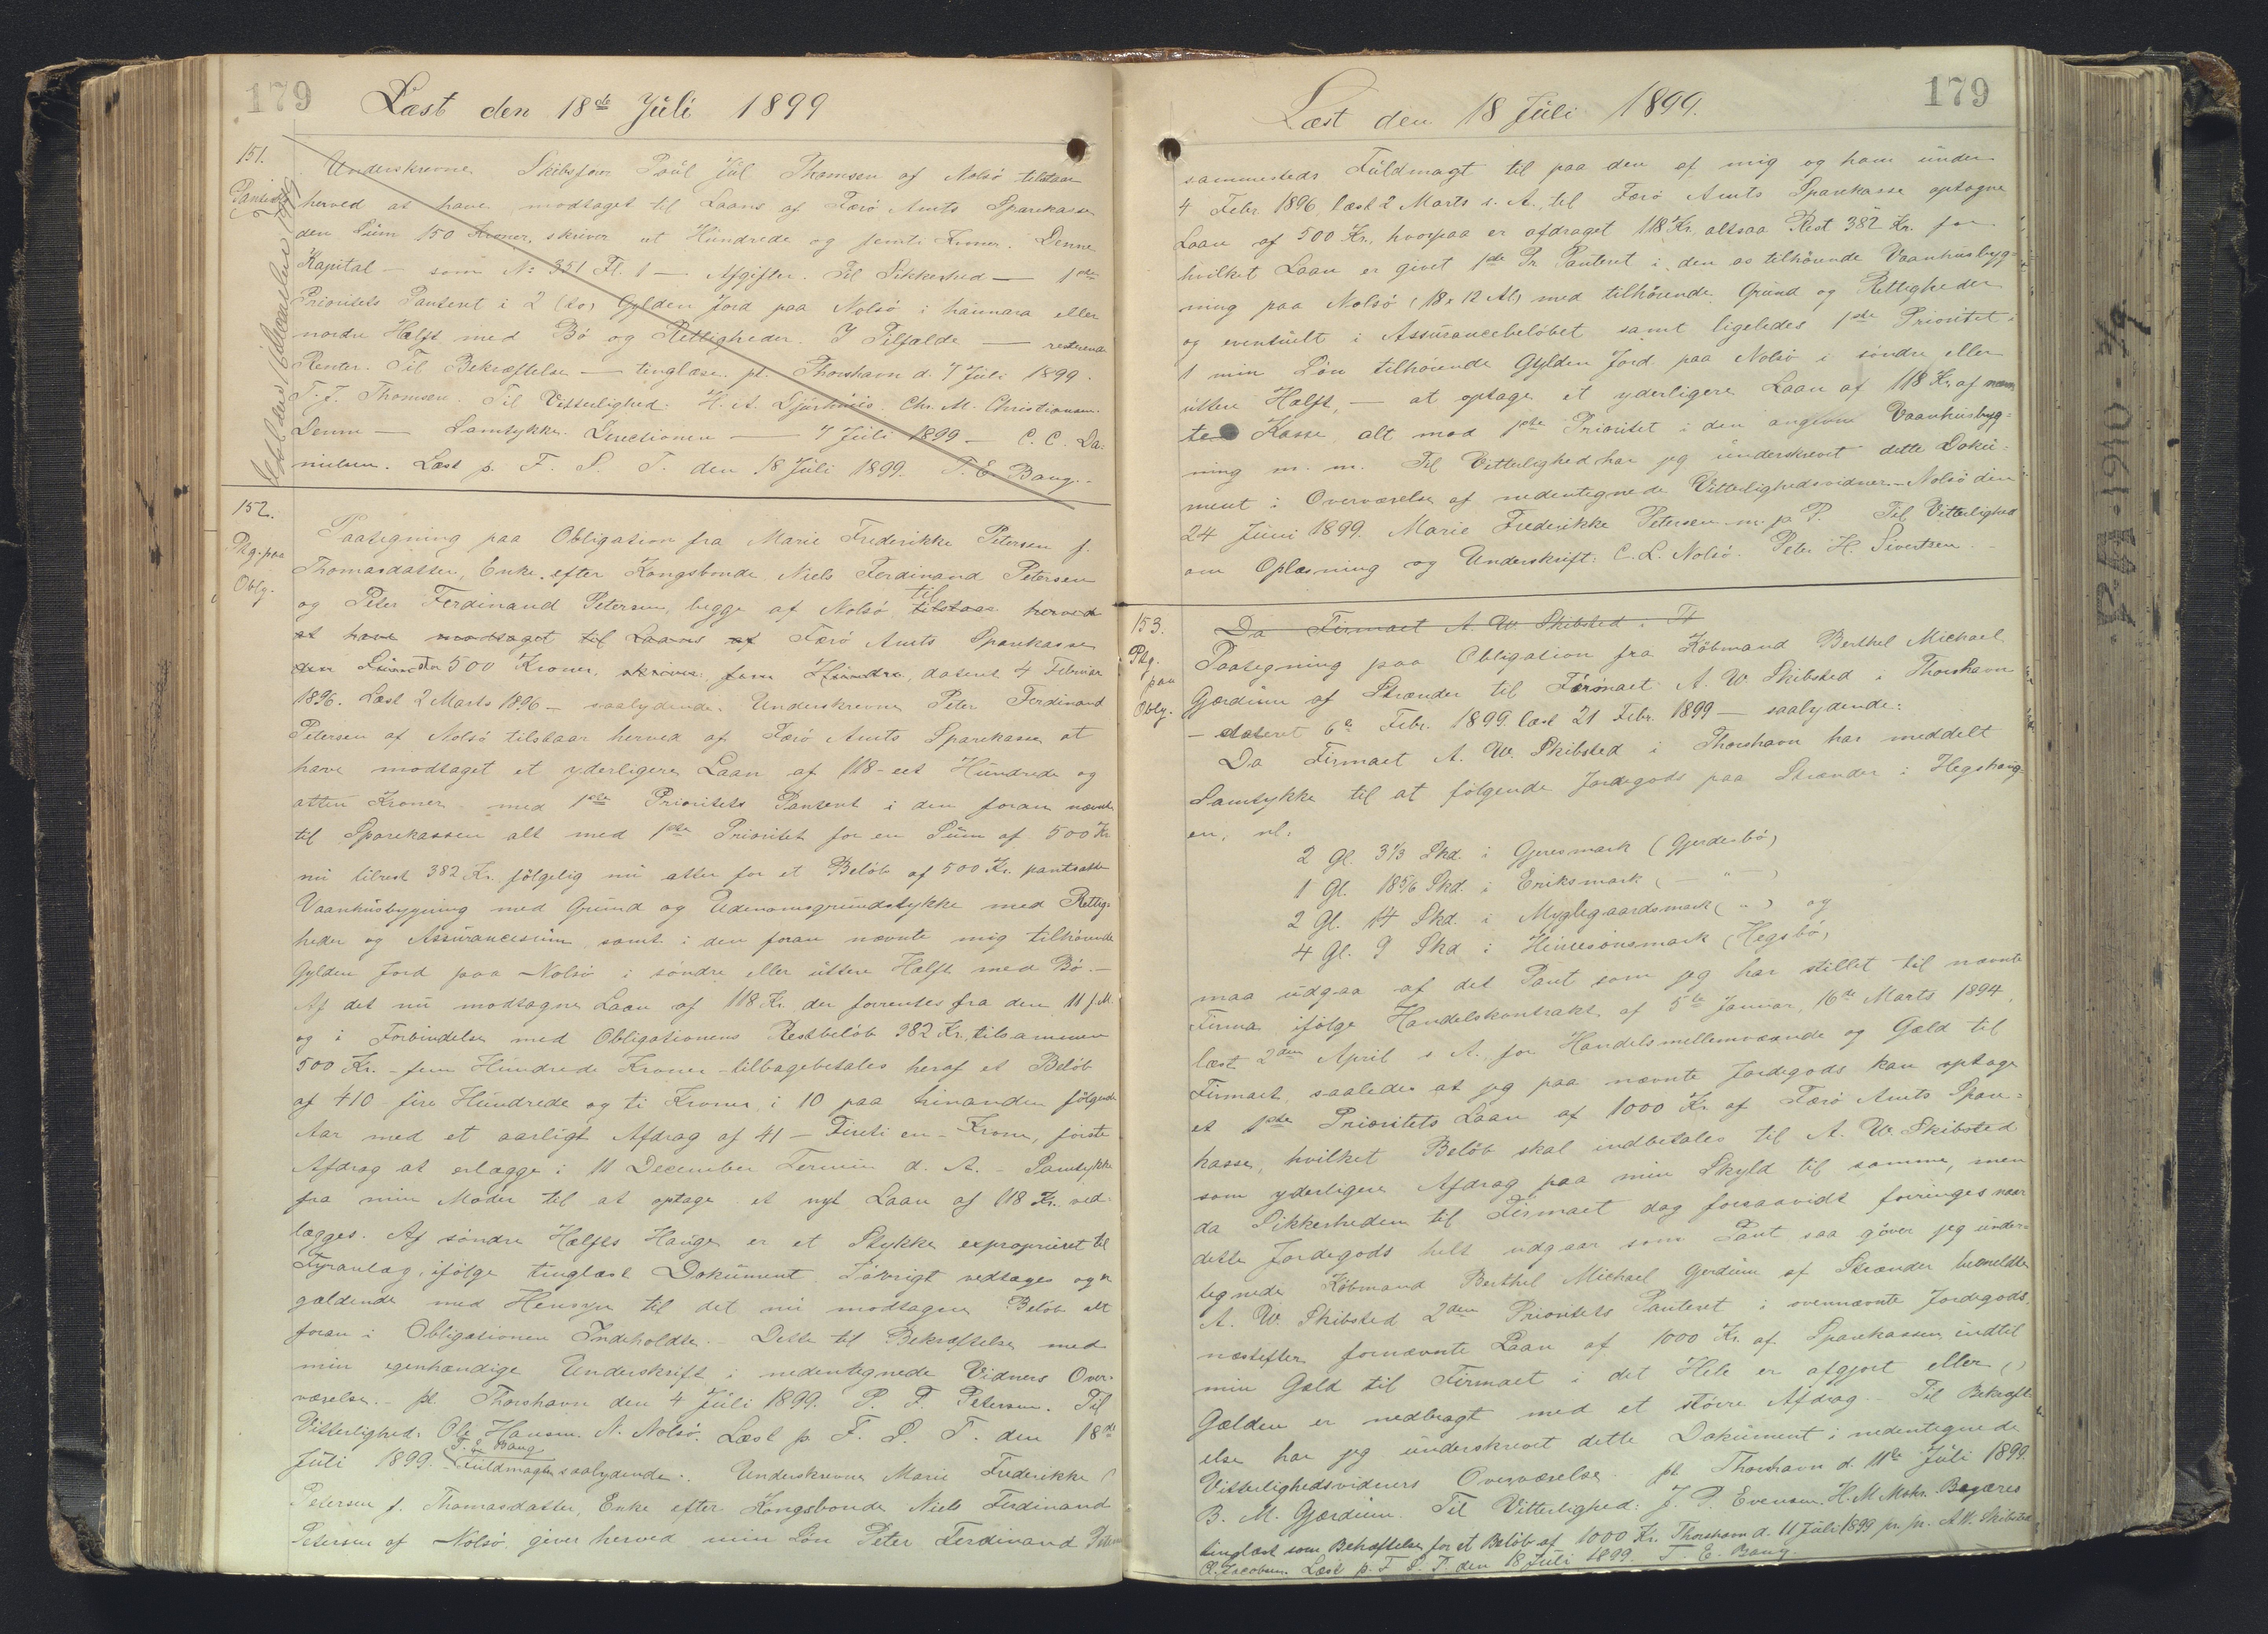 179
Læst den 18de Juli 1899
151.
Underskrevne Skibsfører Poul Juul Thomsen af Nolsö tilstaar
herved at have modtaget til Laans af Færö Amts Sparekasse
den Sum 150 Kroner, skriver et Hundrede og femti Kroner. Denne
Kapital — som No: 351 Fl. 1 — Afgifter. Til Sikkerhed — 1ste
Prioritets Panteret i 2 (to) Gylden Jord paa Nolsö i haunara eller
nordre Hælft med Bö og Rettigheder. I Tilfælde — resterende
Renter. Til Bekræftelse — tinglæse. pt. Thorshavn d. 7 Juli 1899.
Thomsen. Til Vitterlighed: H. A. Djurhuus. Chr. M. Christiansen.
Denne — Samtykke. Directionen — 7 Juli 1899 — C. C. Da-
nielsen. Læst p. F. S. T. den 18 Juli 1899. T. E. Bang.
152.
Ptg. paa
Oblg.
Paategning paa Obligation fra Marie Frederikke Petersen f.
Thomasdatter, Enke efter Kongsbonde Niels Ferdinand Petersen
og Peter Ferdinand Petersen, begge af Nolsö til tilstaar herved
at have modtaget til Laans af Færö Amts Sparekasse
den Sum stor 500 Kroner, skriver fem Hundre, dateret 4 Februar
1896. Læst 2 Marts 1896 — saalydende: Underskrevne Peter Ferdinand
Petersen af Nolsö tilstaar herved af Færö Amts Sparekasse at
have modtaget et yderligere Laan af 118 - eet Hundrede og
atten Kroner med 1ste Prioritets Panteret i den foran nævnte
til Sparekassen alt med 1ste Prioritet for en Sum af 500 Kr
nu tilrest 382 Kr. fölgelig nu atter for et Belöb af 500 Kr. pantsatte
Vaanhusbygning med Grund og Udenomsgrundstykke med Rettig-
heder og Assurancesum samt i den foran nævnte mig tilhörende
Gylden Jord paa Nolsö i söndre eller üttere Hælft med Bö.—
Af det nu modtagne Laan af 118 Kr. der forrentes fra den 11 f. M.
og i Forbindelse med Obligationens Restbelöb 382 Kr. tilsammen
500 Kr. - fem Hundrede Kroner - tilbagebetales heraf et Belöb
af 410 - fire Hundrede og ti Kroner, i 10 paa hinanden fölgende
Aar med et aarligt Afdrag af 41 — Firti en - Krone, förste
Afdrag at erlægge i 11 December Termin d. A. - Samtykke
fra min Moder til at optage et nyt Laan af 118 Kr. ved-
lægges. Af söndre Hælfts Hauge er et Stykke exproprieret til
Fyranlæg, ifölge tinglæst Dokument. Iövrigt vedtages og er
gældende med Hensyn til det nu modtagne Belöb alt
foran i Obligationen Indeholdte. - Dette til Bekræftelse med
min egenhændige Underskrift i nedentegnede Vidners Over-
værelse. - pt. Thorshavn den 4 Juli 1899. P. F. Petersen. Til
Vitterlighed: Ole Hansen. N. Nolsö. Læst p. F. S. T. den 18de
Juli 1899. T. E. Bang Fuldmagten saalydende: Underskrevne Marie Frederikke
Petersen f. Thomasdatter, Enke efter Kongsbonde Niels Ferdinand
Petersen af Nolsö, giver herved min Sön Peter Ferdinand
179
Læst den 18 Juli 1899.
sammesteds Fuldmagt til paa den af mig og ham under
4 Febr. 1896, læst 2 Marts s. A., til Færö Amts Sparekasse optagne
Laan af 500 Kr., hvorpaa er afdraget 118 Kr. altsaa Rest 382 Kr. for
hvilket Laan er givet 1ste Pr. Panteret i den os tilhörende Vaanhusbyg-
ning paa Nolsö (18 x 12 Al) med tilhörende Grund og Rettigheder
og eventuelt i Assurancebelöbet samt ligeledes 1ste Prioritet i
1 min Sön tilhörende Gylden Jord paa Nolsö i söndre eller
üttere Hælft, — at optage et yderligere Laan af 118 Kr. af nævn
te Kasse, alt mod 1ste Prioritet i den angivne Vaanhusbyg-
ning m. m. Til Vitterlighed har jeg underskrevet dette Doku-
ment i Overværelse af nedentegnede Vitterlighedsvidner. Nolsö den
24 Juni 1899. Marie Frederikke Petersen m. p. P. Til Vitterlighed
om Oplæsning og Underskrift: C. L. Nolsö. Peter H. Sivertsen.
153.
Ptg.
paa
Oblg.
Da Firmaet A. W. Skibsted i Th
Paategning paa Obligation fra Köbmand Berthel Michael
Gærdum af Strænder til Firmaet A. W. Skibsted i Thorshavn
— dateret 6te Febr. 1899. læst 21 Febr. 1899 — saalydende:
Da Firmaet A. W. Skibsted i Thorshavn har meddelt
Samtykke til at fölgende Jordegods paa Strænder i Hegshaug-
en, nl.
2 Gl. 3 1/3 Skd. i Gjeresmark (Gjerdesbö)
1 Gl. 18 5/6 Skd. i Eriksmark ( — " — )
2 Gl. 14 Skd. i Myglegaardsmark ( " ) og
4 Gl. 9 Skd. i Hinriksönsmark (Hegsbö)
maa udgaa af det Pant som jeg har stillet til nævnte
Firma ifölge Handelskontrakt af 5te Januar, 16de Marts 1894,
læst 2den April s. A. for Handelsmellemværende og Gæld til
Firmaet, saaledes at jeg paa nævnte Jordegods kan optage
et 1ste Prioritets Laan af 1000 Kr. af Færö Amts Spare-
kasse, hvilket Belöb skal indbetales til A. W. Skibsted
som yderligere Afdrag paa min Skyld til samme, men
da Sikkerheden til Firmaet dog forsaavidt forringes naar
dette Jordegods helt udgaar som Pant saa giver jeg under-
tegnede Köbmand Berthel Michael Gærdum af Strænder bemeldte
A. W. Skibsted 2den Prioritets Panteret i ovennævnte Jordegods,
næstefter fornævnte Laan af 1000 Kr. af Sparekassen indtil
min Gæld til Firmaet i det Hele er afgjort eller
Gælden er nedbragt med et större Afdrag. - Til Bekræft-
else har jeg underskrevet dette Dokument i nedentegnede
Vitterlighedsvidners Overværelse. pt. Thorshavn d. 11te Juli 1899.
B. M. Gærdum. Til Vitterlighed: J. P. Evensen. H. M. Mohr. Begæres
tinglæst som Behæftelse for et Belöb af 1000 Kr. Thorshavn d. 11 Juli 1899 pr. pr. A. W. Skibsted
Jacobsen. Læst p. F. S. T. den 18 Juli 1899. T. E. Bang.